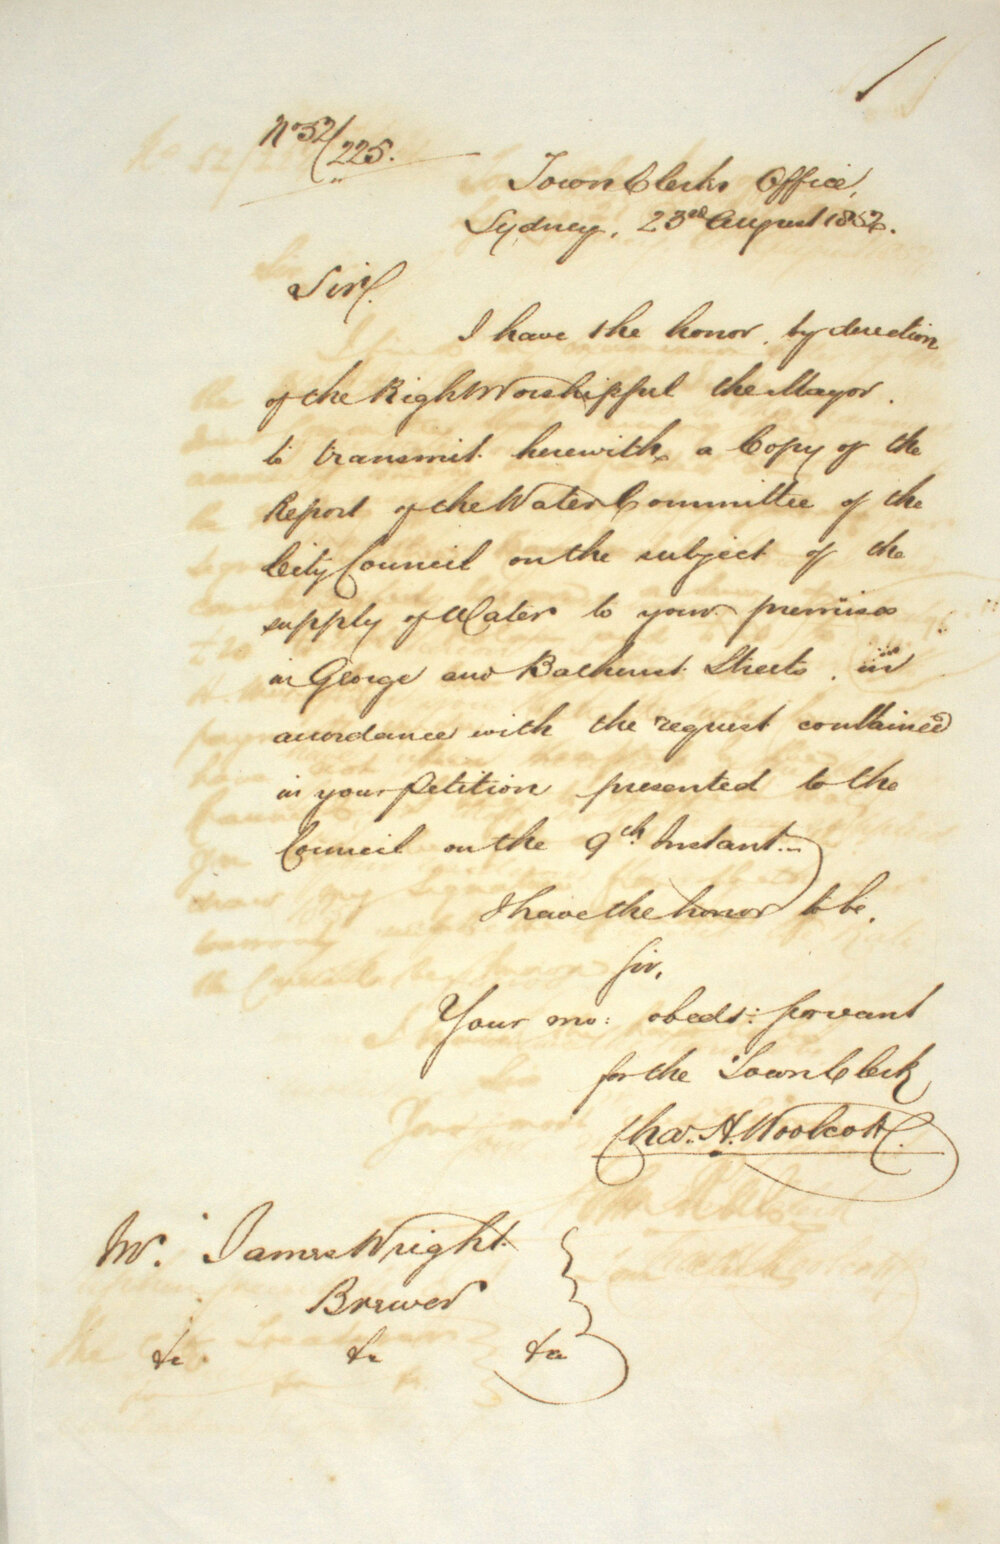 No 52/225.
Town Clerks Office,
Sydney, 23rd August 1852.
Sir,
I have the honor, by direction
of the Right Worshipful the Mayor.
to transmit herewith, a Copy of the
Report of the Water Committee of the
City Council on the subject of the
supply of Water to your premises
in George and Bathurst Streets, in
accordance with the request contained
in your Petition presented to the
Council on the 9th Instant.
I have the honor to be,
Sir,
Your mo: obedt: Servant
for the Town Clerk
Chas. H. Woolcott.
Mr. James Wright
Brewer
&c &c &c